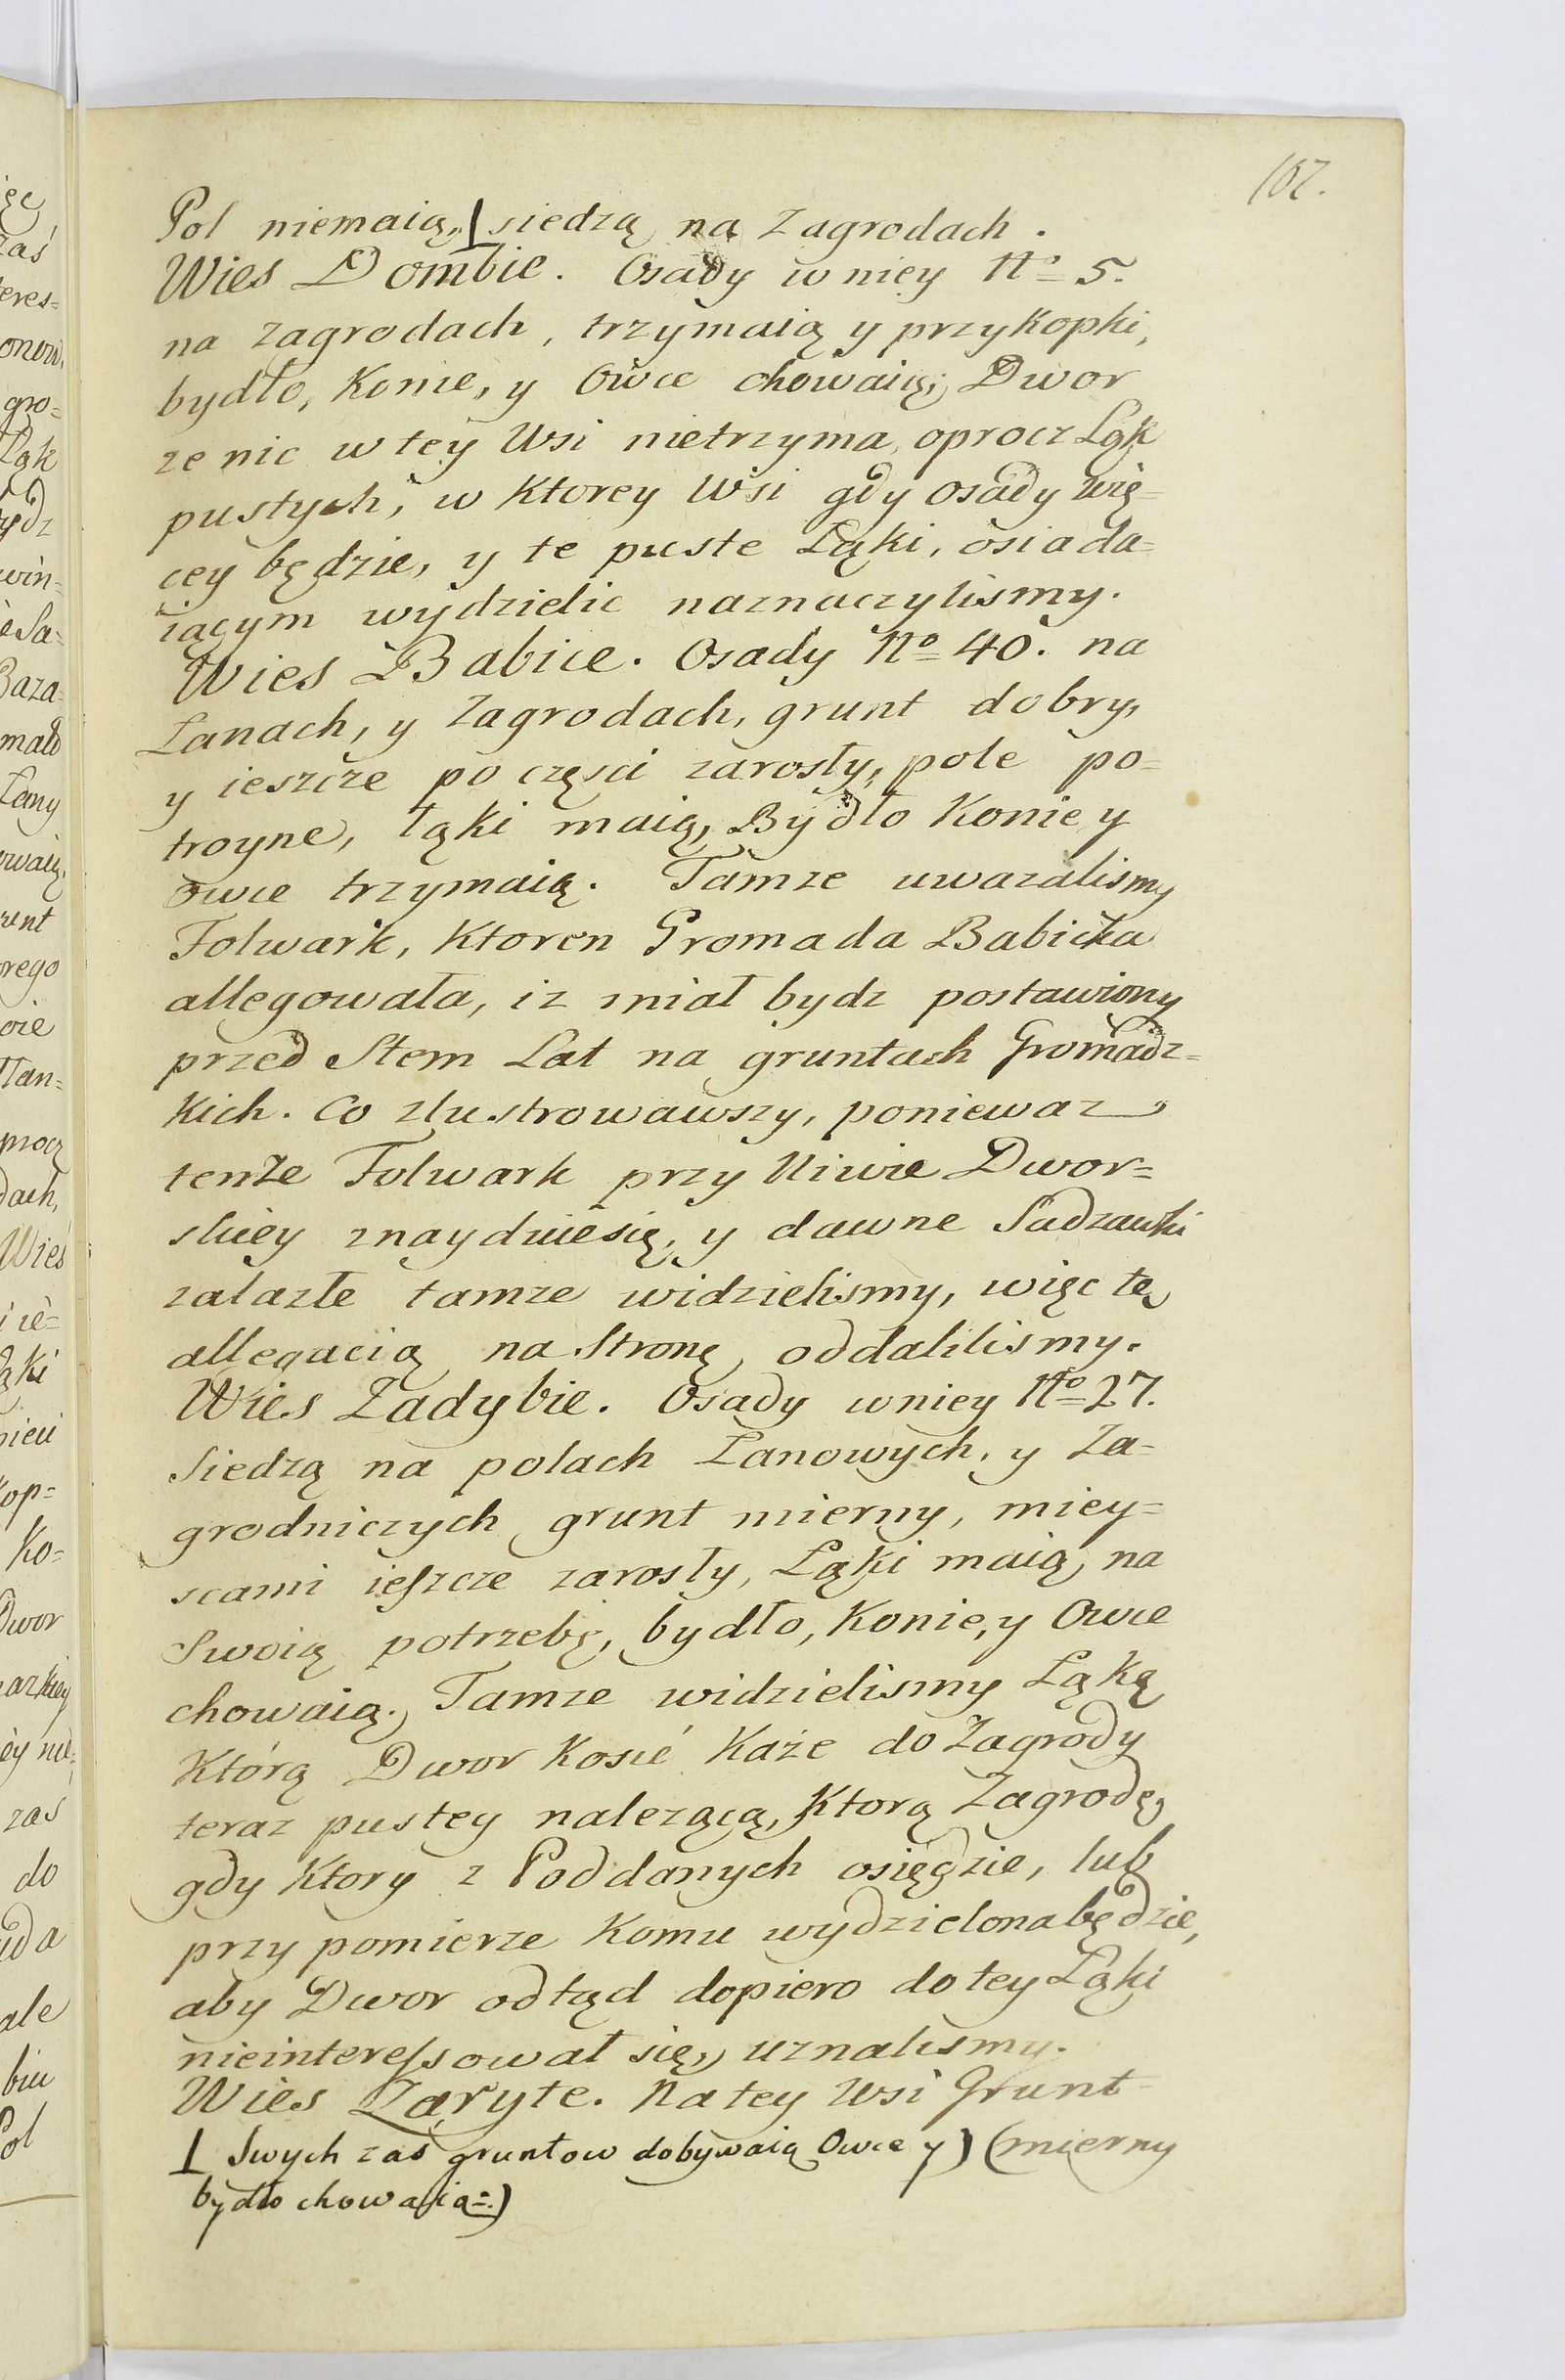 167.
Pol niemaią, ⊥ siedzą na Zagrodach.
Wies Dombie. Osady w niey No 5.
na zagrodach, trzymaią y przykopki,
bydło, Konie, y Owce chowaią; Dwor
ze nic w tey Wsi nietrzyma, oprocz Ląk
pustych, w Ktorey Wsi gdy osady wię=
cey będzie, y te puste Ląki, osiada=
iącym wydzielic naznaczylismy.
Wies Babice. Osady No 40. na
Lanach, y Zagrodach, grunt dobry,
y ieszcze po częsci zarosły, pole po=
troyne, łąki maią, Bydło Konie y
owce trzymaią. Tamze uwazalismy
Folwark, Ktoren Gromada Babicka
allegowała, iz miał bydz postawiony
przed Stem Lat na gruntach Gromadz=
kich. Co zlustrowawszy, poniewaz
tenże Folwark przy Niwie Dwor=
skiey znaydzie się, y dawne Sadzawki
zalazłe tamze widzielismy, więc tę
allegacią na Stronę oddalilismy.
Wies Zadybie. Osady w niey No 27.
Siedzą na polach Lanowych, y Za=
grodniczych grunt mierny, miey=
scami ieszcze zarosły, Ląki maią na
Swoią potrzebę, bydło, Konie, y Owce
chowaią. Tamze widzielismy Ląkę
Którą Dwor Kosić Każe do Zagrody
teraz pustey nalezącą, Ktorą Zagrodę
gdy Ktory z Poddanych osiędzie, lub
przy pomierze Komu wydzielona będzie,
aby Dwor odtąd dopiero do tey Ląki
nieinteressował się, uznalismy.
Wies Zaryte. Na tey Wsi Grunt
⊥ Swych zas gruntow dobywaią Owce y) (mierny
bydło chowaią=)